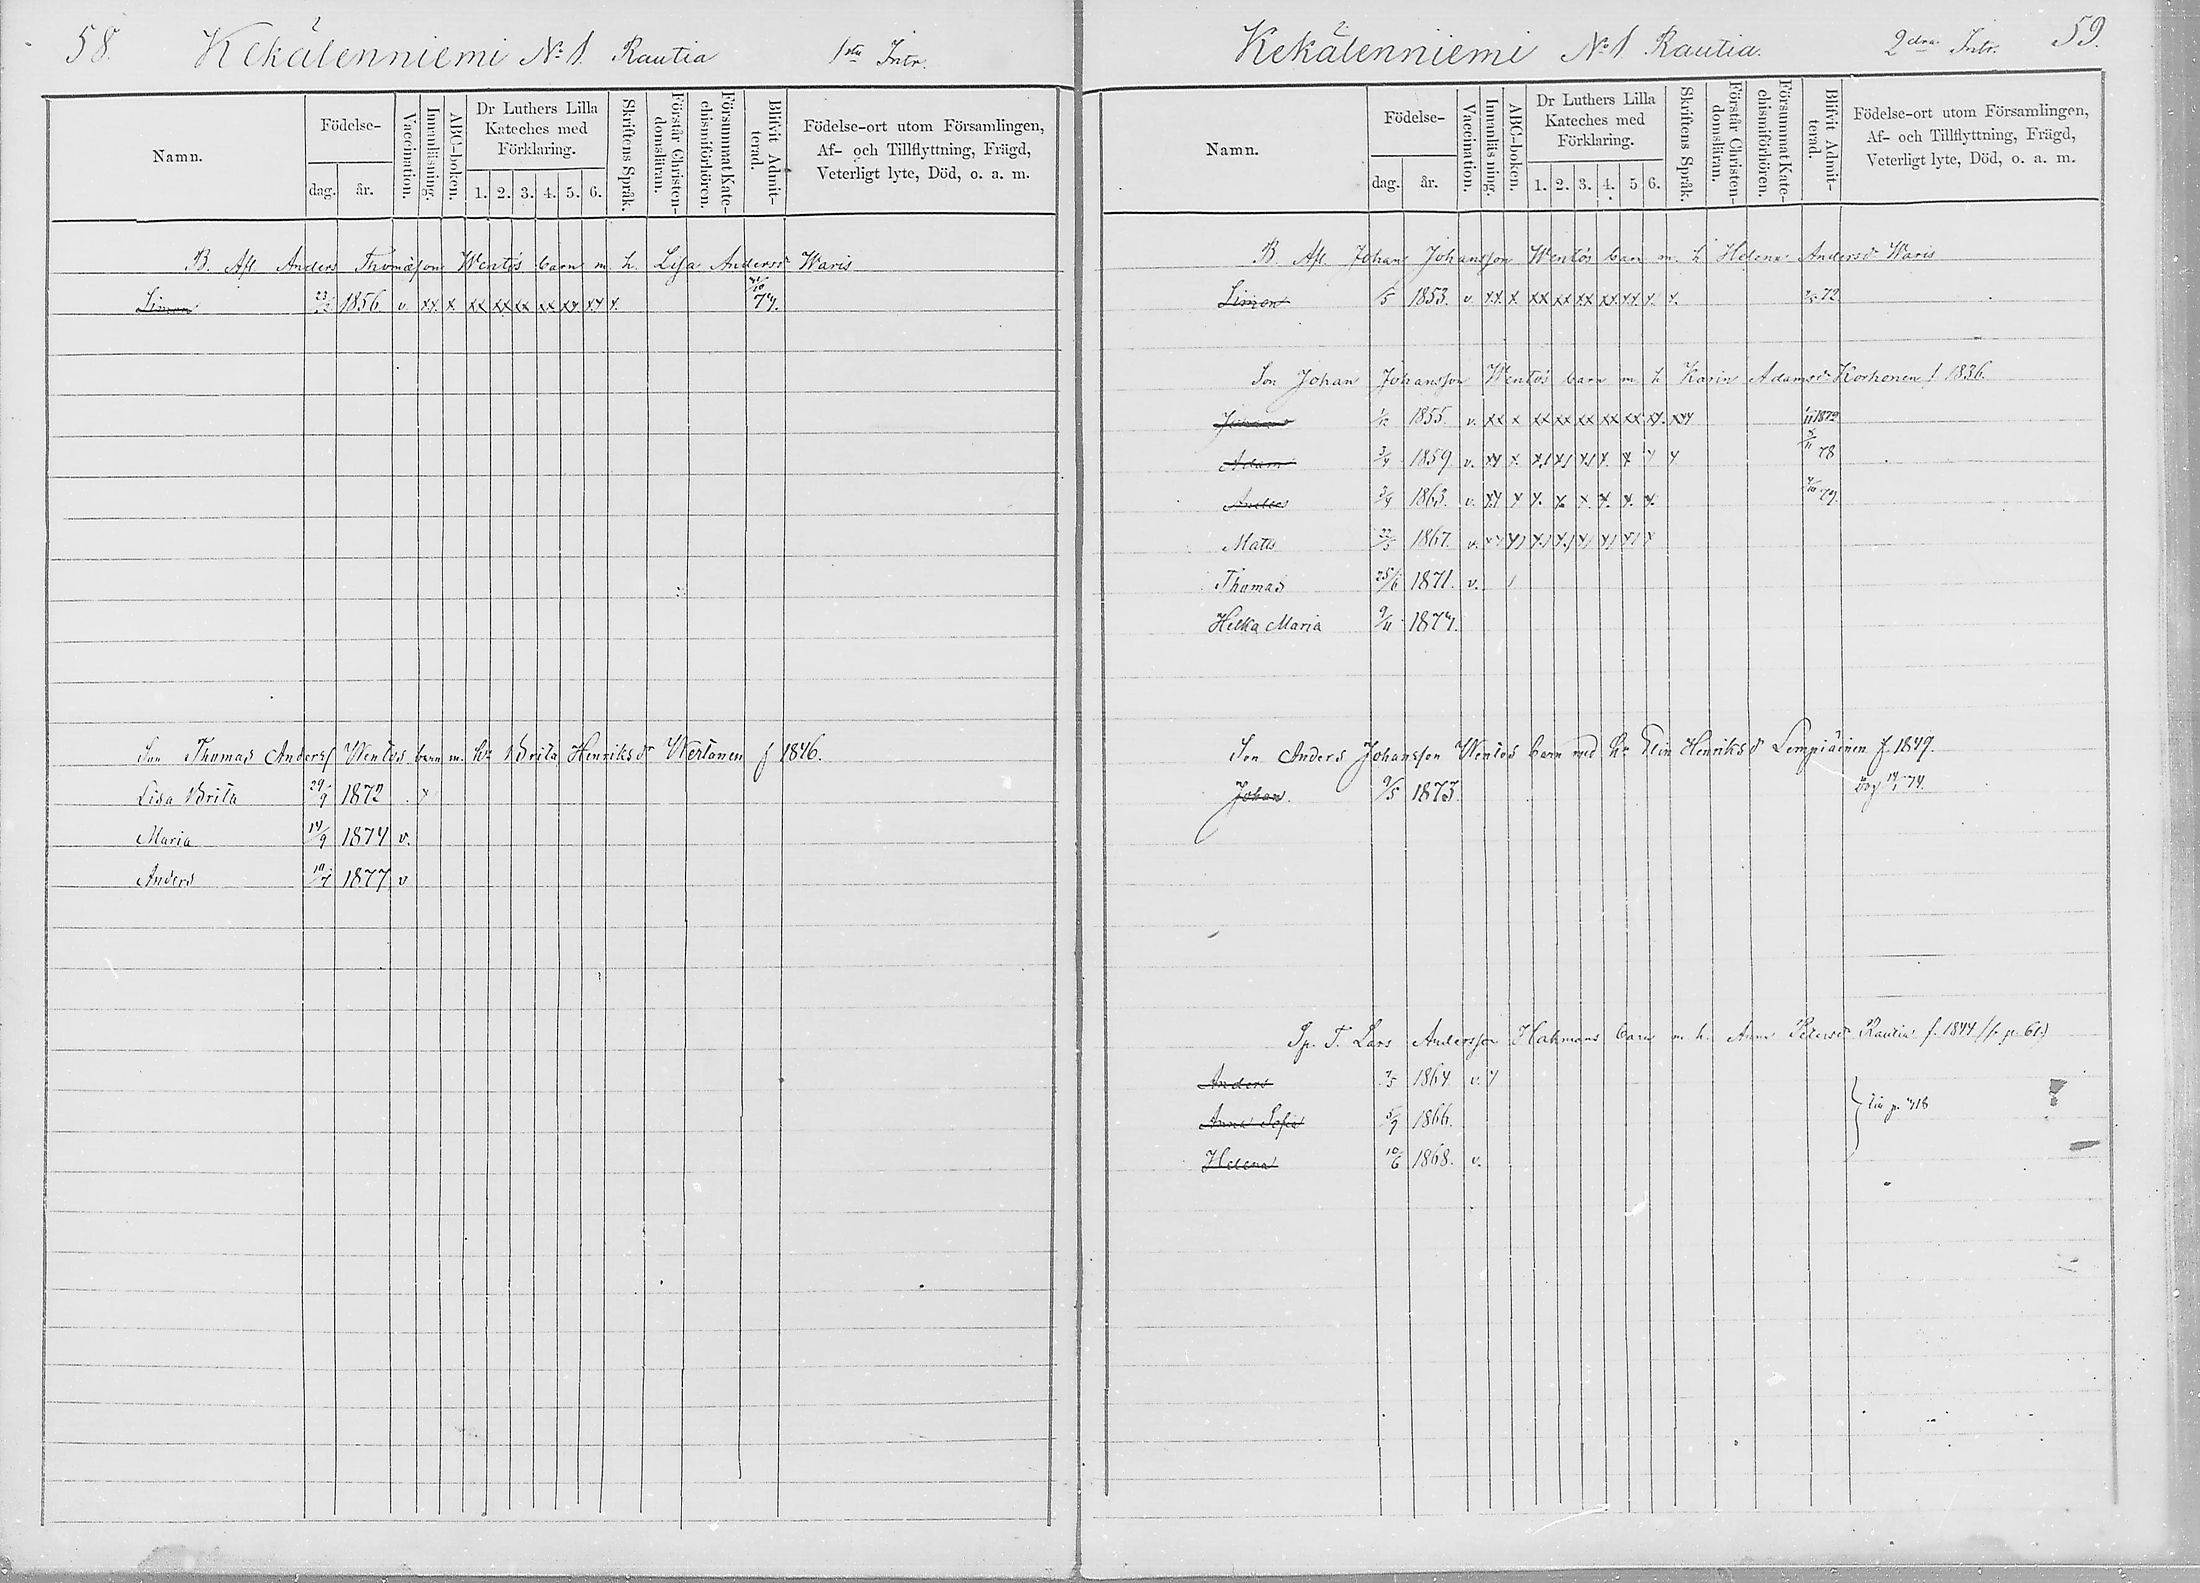 58. Kekälenniemi № 1 Rautia 1sta Intr.
Namn.
Födelse-
dag. år.
Vaccination.
Innanläsning.
ABC-boken.
Dr Luthers Lilla
Kateches med
Förklaring.
1. 2. 3. 4. 5. 6.
Skriftens Språk.
Förstår Christen-
domsläran.
Försummat Kate-
chismiförhören.
Blifvit Admit-
terad.
Födelse-ort utom Församlingen,
Af- och Tillflyttning, Frägd,
Veterligt lyte, Död, o. a. m.
B. Afl. Anders Thomasson Wentos barn m. h. Lisa Andersdr Waris
Simon 1856 v xx x xx xx xx xx xx xx x. 74.
Son Thomas Anders Wentos barn m. hu Brita Henriksdr Wertanen f 1846.
Lisa Brita 29/9 1872 x
Maria 14/9 1874 v.
Anders 1877 v
Kekälenniemi № 1 Rautia. 2dra Intr. 59.
Namn.
Födelse-
dag. år.
Vaccination.
Innanläsning.
ABC-boken.
Dr Luthers Lilla
Kateches med
Förklaring.
1. 2. 3. 4. 5. 6.
Skriftens Språk.
Förstår Christen-
domsläran.
Försummat Kate-
chismiförhören.
Blifvit Admit-
terad.
Födelse-ort utom Församlingen,
Af- och Tillflyttning, Frägd,
Veterligt lyte, Död, o. a. m.
B. Afl. Johan Johansson Wentos barn m. h Helena Andersdr Waris
Simon 1853. v xx x xx xx xx xx xx x. x. 72.
Son Johan Johansson Wentos barn m h Karin Adamsdr Korhonen f 1836.
1855. v. xx x xx xx xx xx xx xx. 1872
Adam 1859 v. xx x. 78
Anders 1863. v. xx x x. x. x. x. x. x. 79.
Matts 1867. v.
Thomas 25/6 1871. v. /
Helka Maria 9/11 1874.
Son Anders Johansson Wentos barn med hu Elin Henriksdr Lempiäinen f. 1849.
Johan. 9/5 1873. 74.
Sp. T. Lars Andersson Hakmans barn m h. Anna Petersdr Rautia f. 1844 (fr. p. 61)
Anders 1864. v. x
Anna Sofia 1866.
Helena 10/6 1868. v.